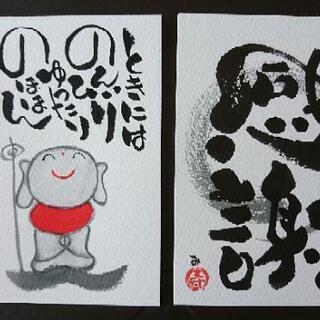 ときには
のんびり
ゆったり
のほほん
感謝
み